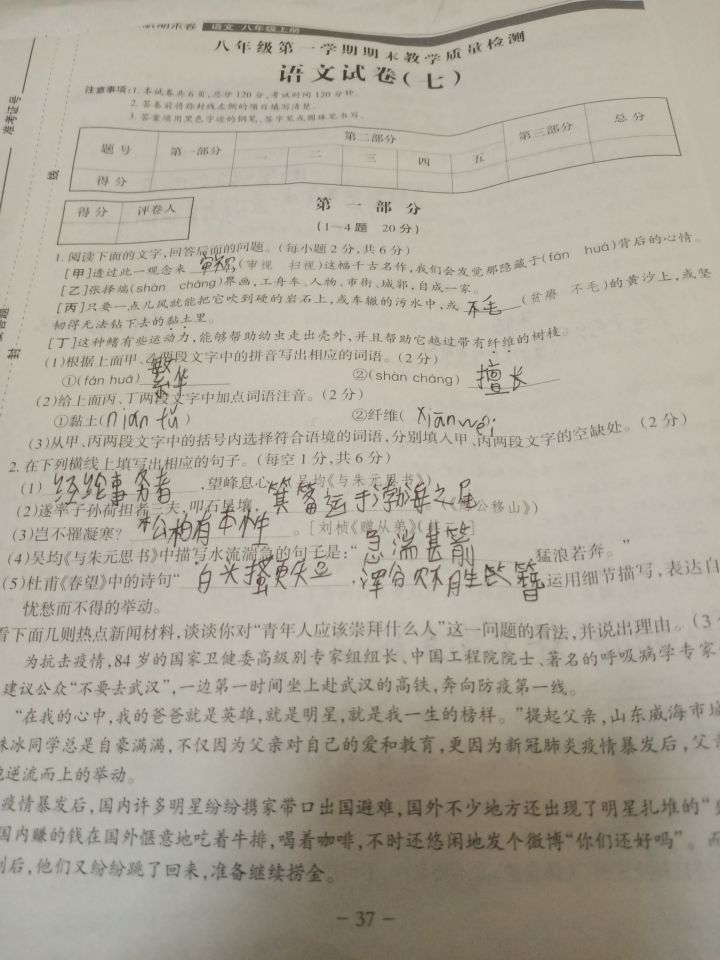 期末卷 语文 八年级上册
八年级第一学期期末教学质量检测
语文试卷(七)
注意事项:1. 本试卷共6页,总分120分,考试时间120分钟。
2. 答卷前将你封线左侧的项目填写清楚。
3. 答案须用黑色字迹的钢笔、签字笔或圆珠笔书写。
题号 第一部分 第二部分 第三部分 总分
一 二 三 四 五
得分
得分 评卷人
准考证号
线
封
第一部分
(1~4题 20分)
1. 阅读下面的文字,回答后面的问题。(每小题2分,共6分)
[甲]透过此一观念来 审视 (审视 扫视)这幅千古名作,我们会发觉那隐藏于(fán huá)背后的心情。
[乙]张择端(shàn cháng)界画,工舟车、人物、市街、城郭,自成一家。
[丙]只要一点儿风就能把它吹到硬的岩石上,或车辙的污水中,或 不毛 (贫瘠 不毛)的黄沙上,或坚
韧得无法钻下去的黏土里。
[丁]这种鳍有些运动力,能够帮助幼虫走出壳外,并且帮助它越过带有纤维的树枝。
(1)根据上面甲、乙两段文字中的拼音写出相应的词语。(2分)
①(fán huá) 繁华 ②(shàn cháng) 擅长
(2)给上面丙、丁两段文字中加点词语注音。(2分)
①黏土(nián tǔ) ②纤维(xiān wéi
(3)从甲、丙两段文字中的括号内选择符合语境的词语,分别填入甲、丙两段文字的空缺处。(2分)
2. 在下列横线上填写出相应的句子。(每空1分,共6分)
(1) 经纶事务者 ,望峰息心。(吴均《与朱元思书》)
(2)遂率子孙荷担者三夫,叩石垦壤, 箕畚运于渤海之尾 公移山》)
(3)岂不罹凝寒? 松柏有本性 。[刘桢《赠从弟》(其二)]
(4)吴均《与朱元思书》中描写水流湍急的句子是:“ 急湍甚箭 猛浪若奔。”
(5)杜甫《春望》中的诗句“ 白头搔更短 , 浑欲不胜簪 运用细节描写,表达自
忧愁而不得的举动。
看下面几则热点新闻材料,谈谈你对“青年人应该崇拜什么人”这一问题的看法,并说出理由。(3
为抗击疫情,84岁的国家卫健委高级别专家组组长、中国工程院院士、著名的呼吸病学专家
建议公众“不要去武汉”,一边第一时间坐上赴武汉的高铁,奔向防疫第一线。
“在我的心中,我的爸爸就是英雄,就是明星,就是我一生的榜样。”提起父亲,山东威海市城
冰同学总是自豪满满,不仅因为父亲对自己的爱和教育,更因为新冠肺炎疫情暴发后,父亲
逆流而上的举动。
疫情暴发后,国内许多明星纷纷携家带口出国避难,国外不少地方还出现了明星扎堆的“
国内赚的钱在国外惬意地吃着牛排,喝着咖啡,不时还悠闲地发个微博“你们还好吗”。而
后,他们又纷纷跳了回来,准备继续捞金。
- 37 -